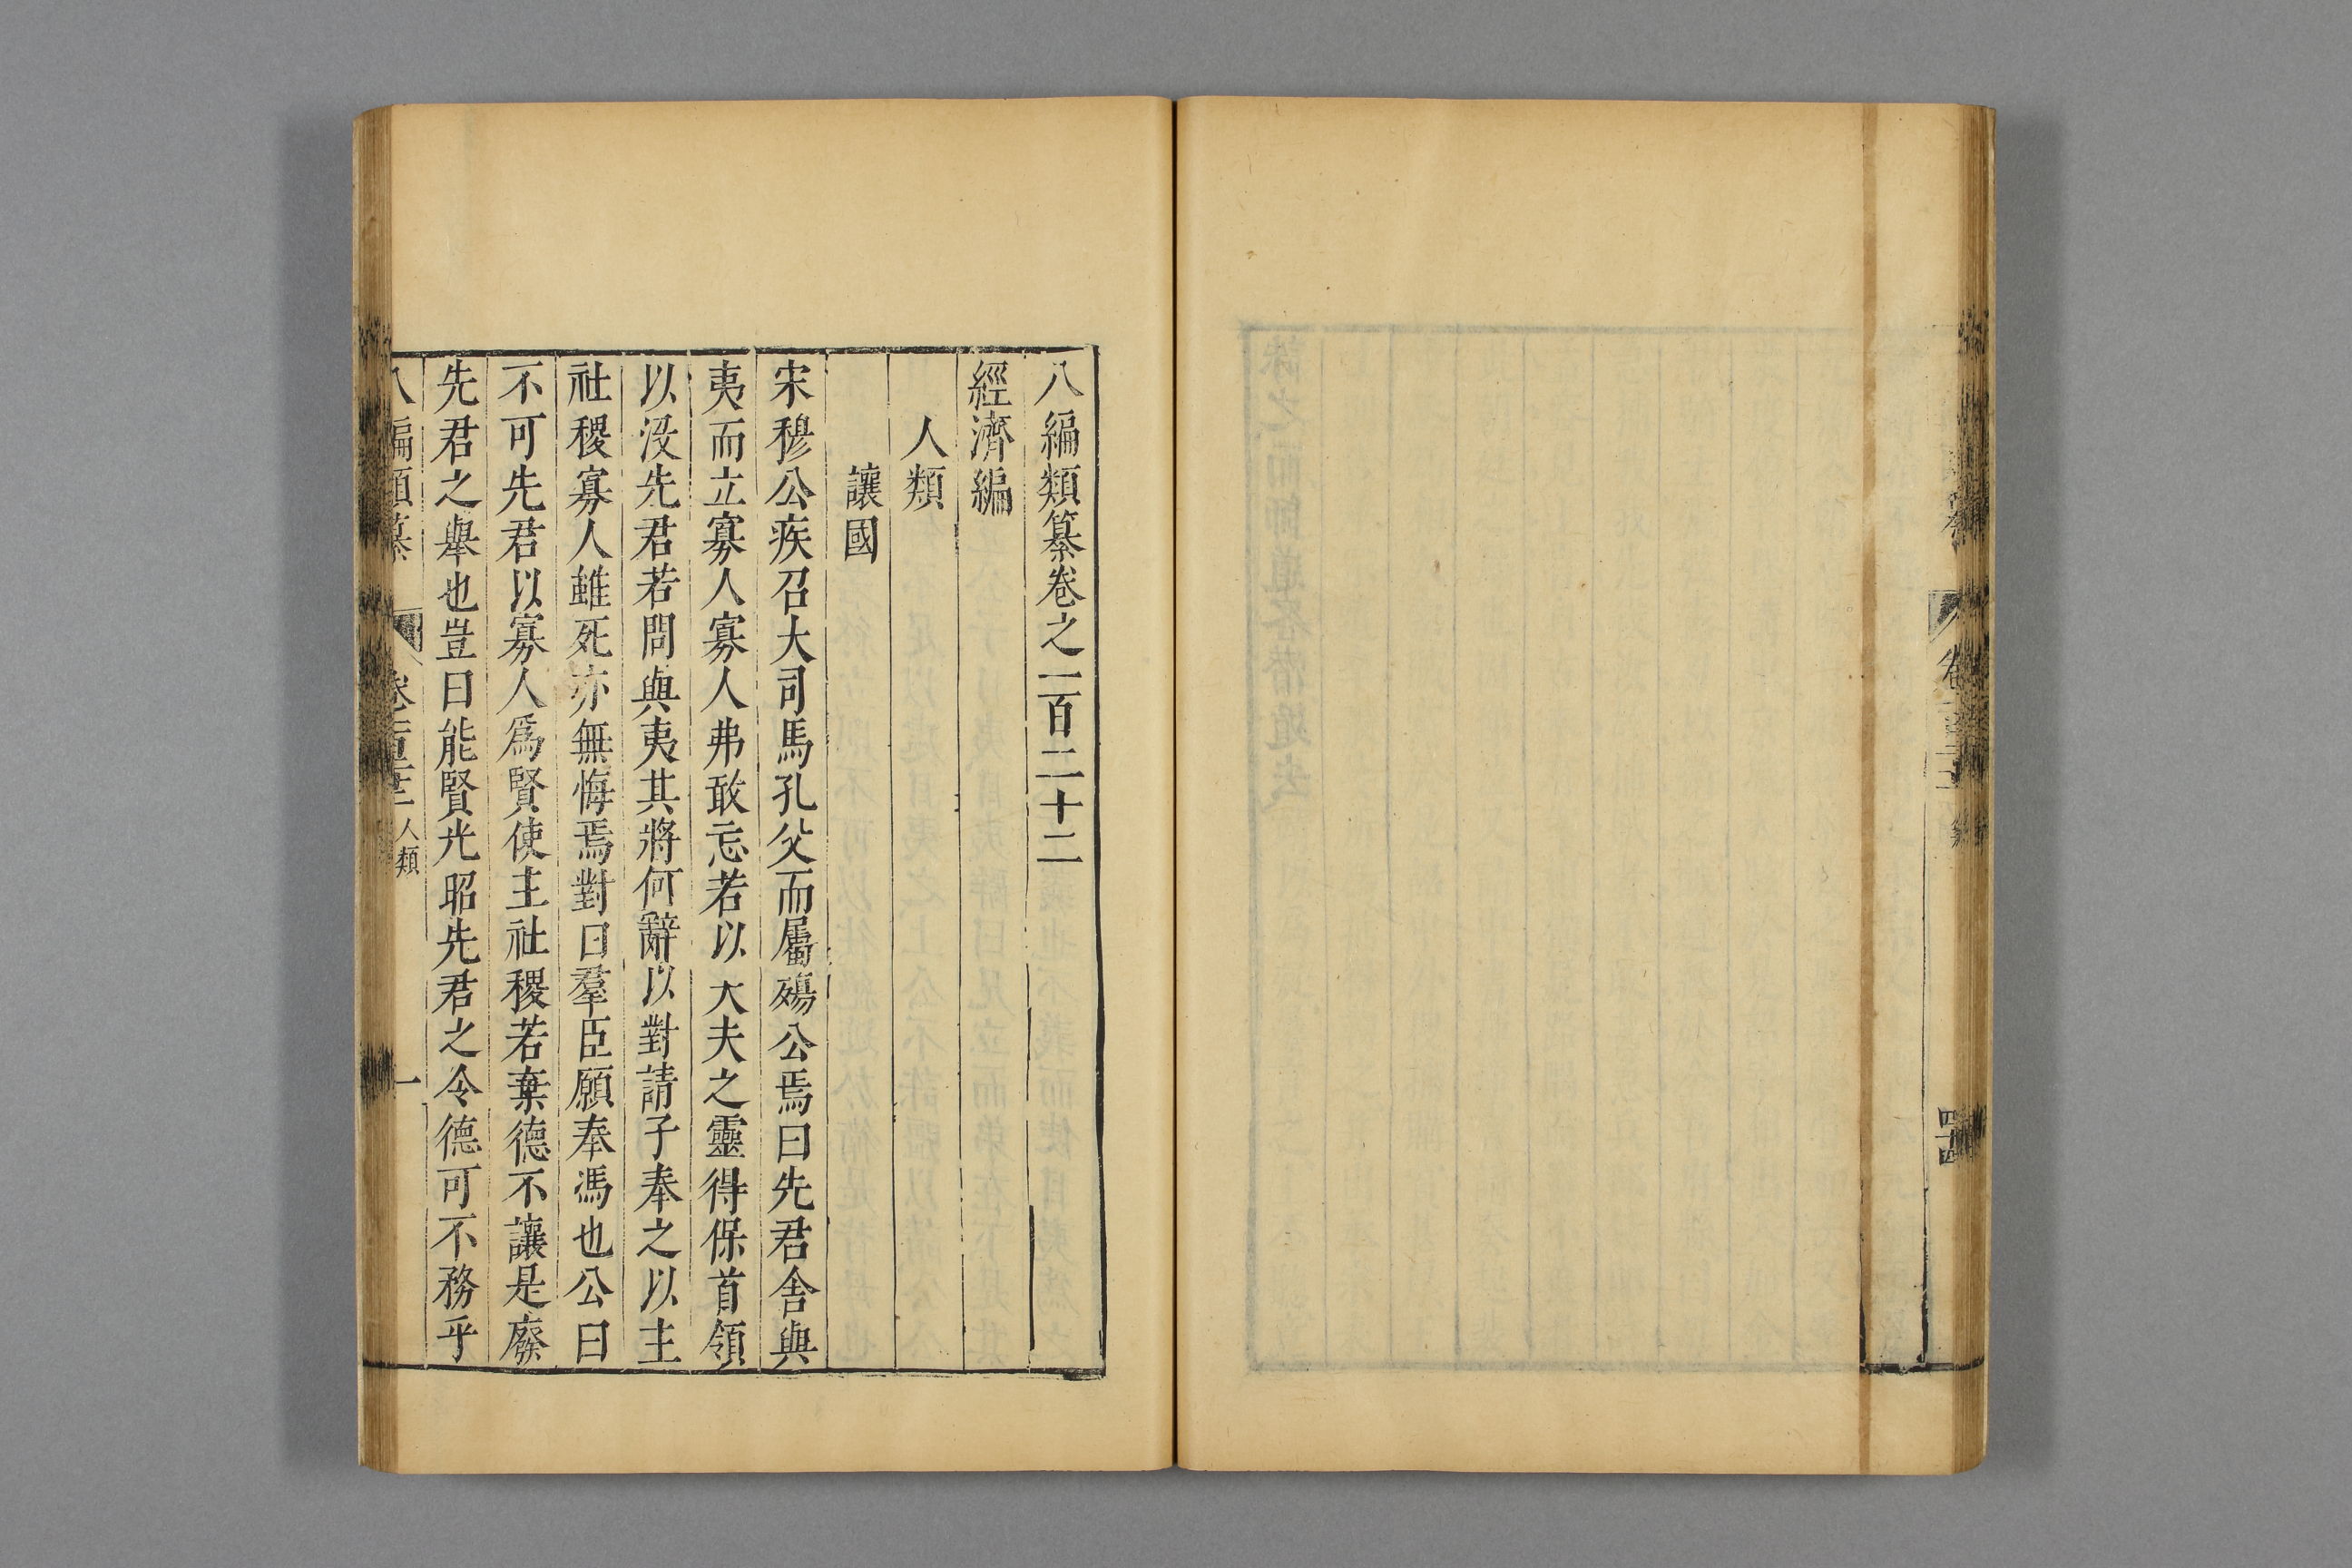 八編類纂卷之一百二十二
經濟編
人類
讓國
宋穆公疾召大司馬孔父而屬殤公焉曰先君舍與
夷而立寡人寡人弗敢忘若以大夫之靈得保首領
以没先君若問與夷其將何辭以對請子奉之以主
社稷寡人雖死亦無悔焉對曰羣臣願奉馮也公曰
不可先君以寡人爲賢使主社稷若棄德不讓是廢
先君之舉也豈曰能賢光昭先君之令德可不務乎
八編類纂 人類 一